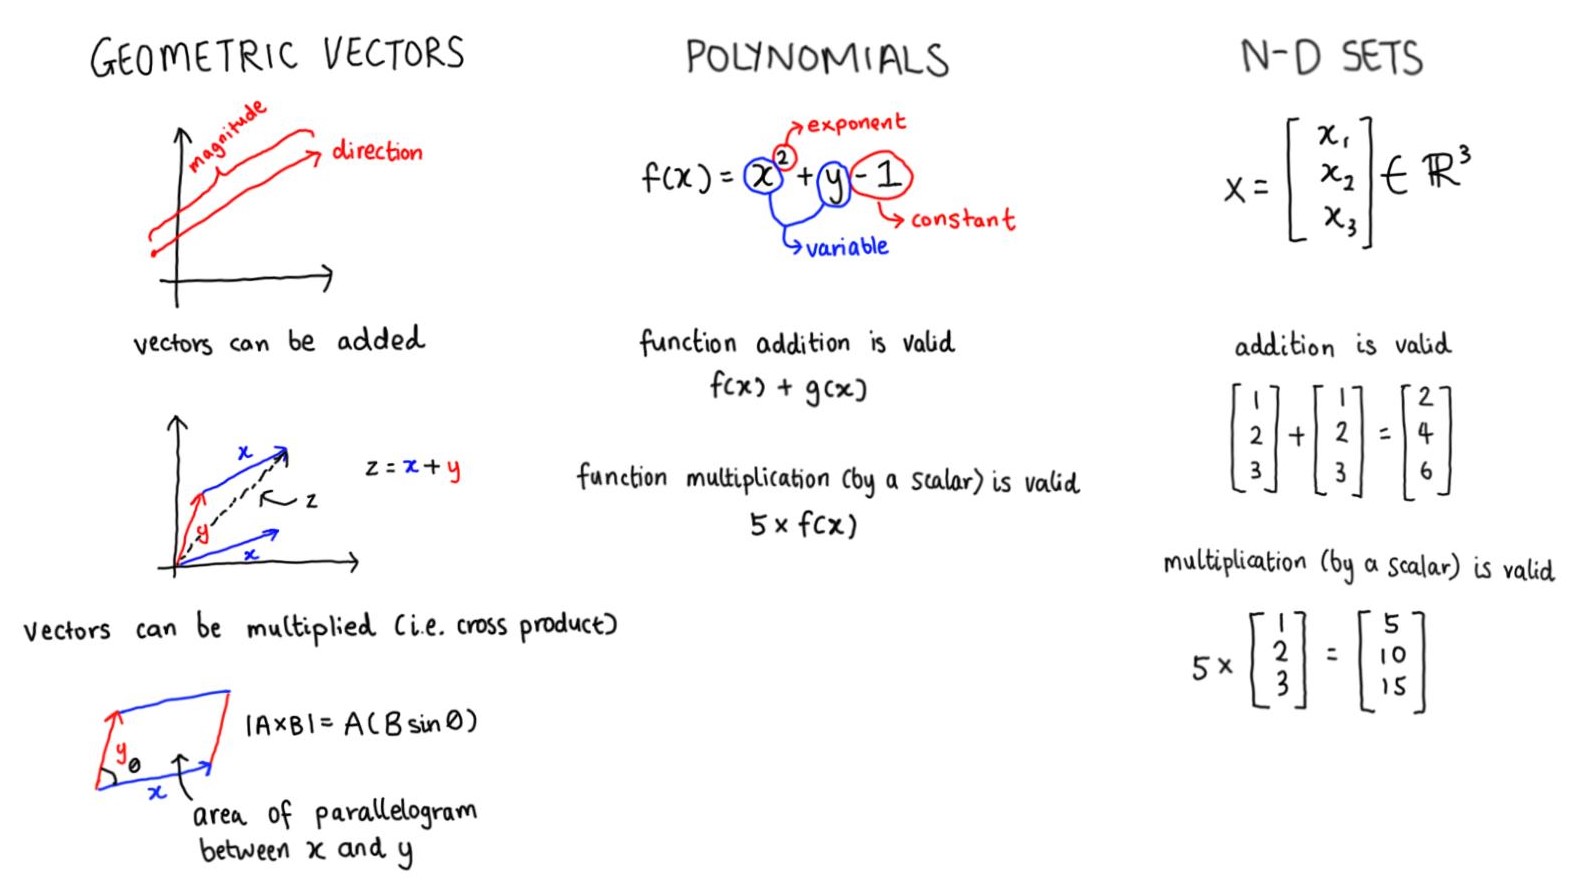 GEOMETRIC VECTORS
magnitude
direction
vectors can be added
x
y
z
x
z = x + y
vectors can be multiplied (i.e. cross product)
y
θ
x
|A×B| = A(B sin θ)
area of parallelogram
between x and y
POLYNOMIALS
exponent
f(x) = x² + y - 1
constant
variable
function addition is valid
f(x) + g(x)
function multiplication (by a scalar) is valid
5 × f(x)
N-D SETS
x₁
x = [ x₂ ] ∈ ℝ³
x₃
addition is valid
1 1 2
[ 2 ] + [ 2 ] = [ 4 ]
3 3 6
multiplication (by a scalar) is valid
1 5
5 × [ 2 ] = [ 10 ]
3 15